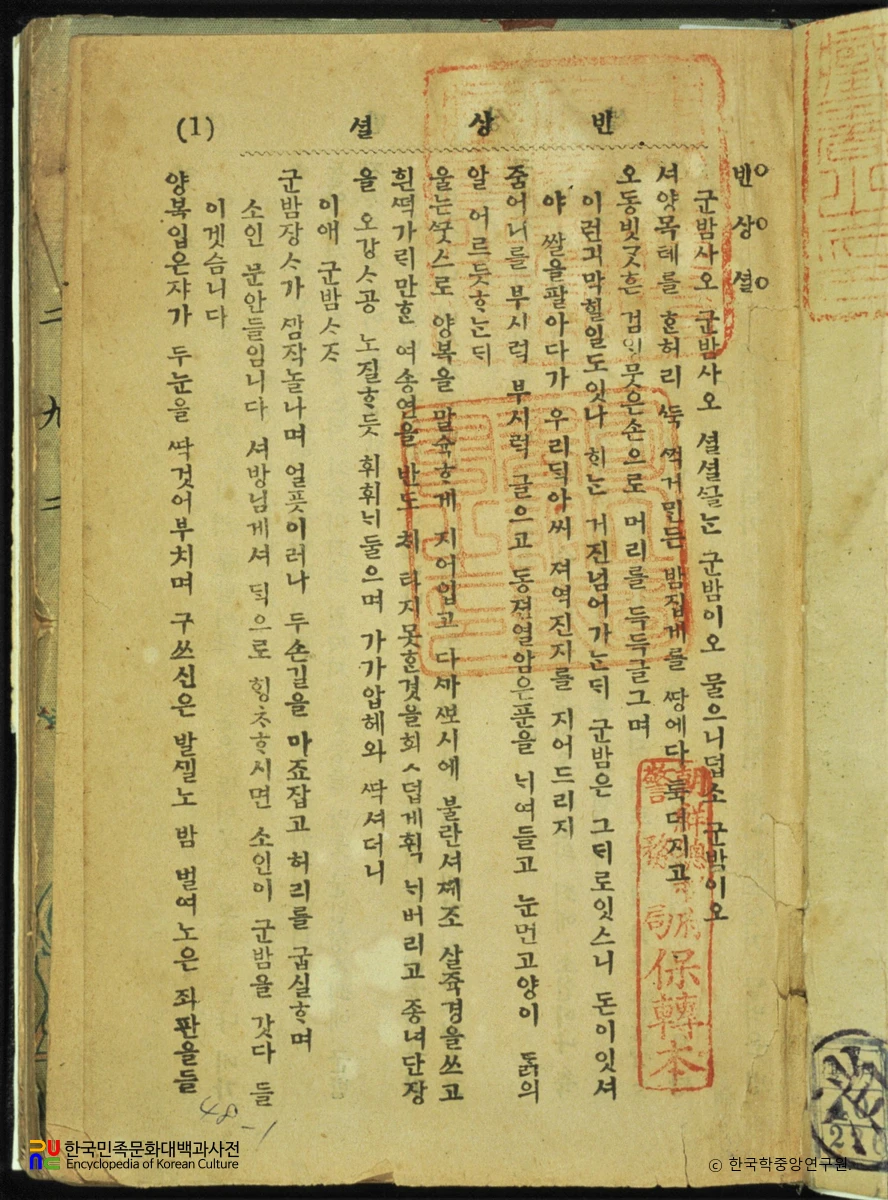 반 상 셜
(1)
반 상 셜
군밤사오 군밤사오 셜셜ᄭᅳᆯ는 군밤이오 물으니덥소 군밤이오
셔양목테를 ᄒᆞᆫ허리 ᄯᅮᆨ ᄭᅥᆨ거민든 밤집게를 ᄯᅡᆼ에다 툭더지고
오동빗ᄀᆞᆺ흔 검 뭇은손으로 머리를 득득글그며
이런긔막힐일도잇나 ᄒᆡ는 거진넘어가는ᄃᆡ 군밤은 그ᄃᆡ로잇스니 돈이잇셔
야 ᄊᆞᆯ을팔아다가 우리ᄃᆡᆨ아씨 져역진지를 지어드리지
줌어니를 부시럭 부시럭 글으고 동젼열암은푼을 ᄂᆡ여들고 눈먼고양이 ᄃᆞᆰ의
알 어르듯ᄒᆞ는ᄃᆡ
울는ᄭᅮᆺ스로 양복을 말ᄉᆞᆨᄒᆞ게 지어입고 다ᄭᅡᄲᅩ시에 불란셔졔조 살쥭경을쓰고
흰ᄯᅥᆨ가ᄅᆡ만ᄒᆞᆫ 여송연을 반도 ᄎᆡ 타지못ᄒᆞᆫ것을회ᄉ덥게획 ᄂᆡ버리고 종녀단장
을 오강ᄉ공 노질ᄒᆞ듯 휘휘ᄂᆡ둘으며 가가압헤와 ᄯᅡᆨ셔더니
이애 군밤ᄉ즈
군밤장ᄉ가 ᄭᅡᆷ작놀나며 얼풋이러나 두손길을 마죠잡고 허리를 굽실ᄒᆞ며
소인 문안들임니다 셔방님게셔 ᄃᆡᆨ으로 ᄒᆡᆼᄎᆞᄒᆞ시면 소인이 군밤을 갓다 들
이겟슴니다
양복입은쟈가 두눈을 ᄯᅡᆨ것어부치며 구쓰신은 발ᄭᅵᆯ노 밤 벌여노은 좌판을들
朝鮮總
警務局
保轉本
二
九
二
48-1
한국민족문화대백과사전
Encyclopedia of Korean Culture
ⓒ 한국학중앙연구원